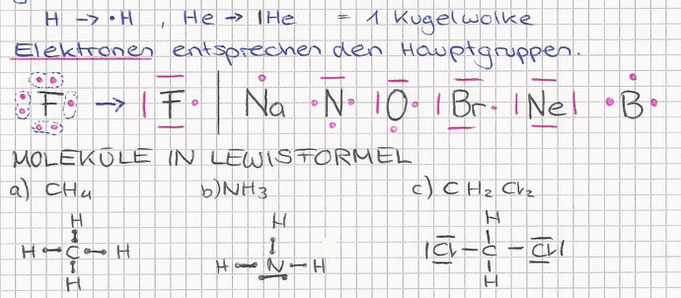 H → ·H , He → |He = 1 Kugelwolke
Elektronen entsprechen den Hauptgruppen.
F → F Na N O Br Ne B
MOLEKÜLE IN LEWISFORMEL
a) CH4 b) NH3 c) CH2Cl2
H H H
H C H H N H Cl C Cl
H H